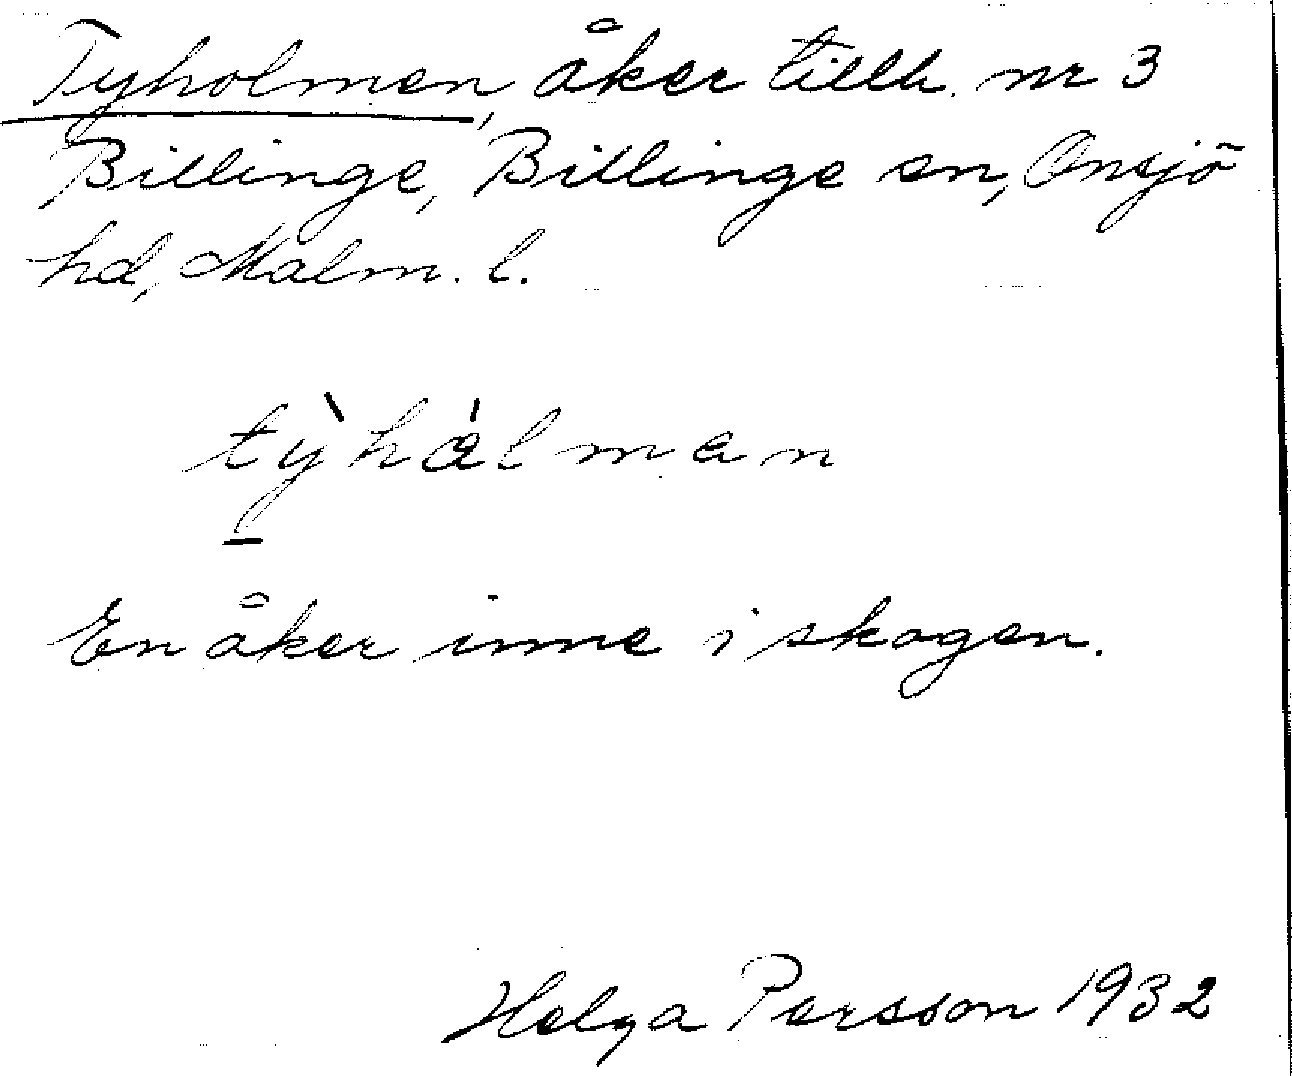 Tyholmen, åker tillh. nr 3
Billinge, Billinge sn, Onsjö
hd, Malm. l.
tỳhålmen
En åker inne i skogen.
Helga Persson 1932